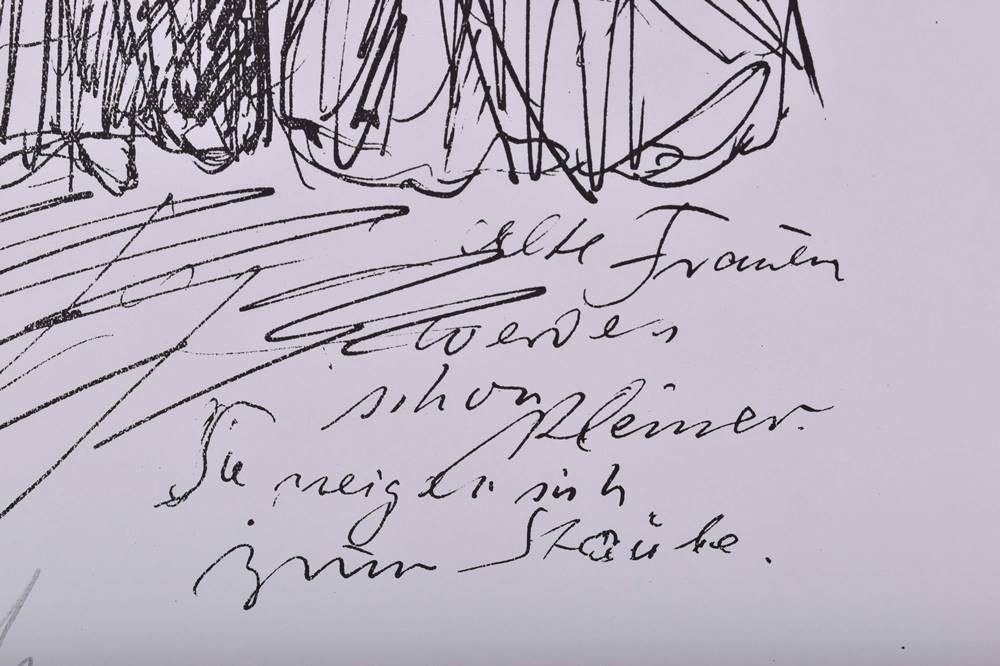 Alte Frauen
werden
schon kleiner.
Sie neigen sich
zum Staube.